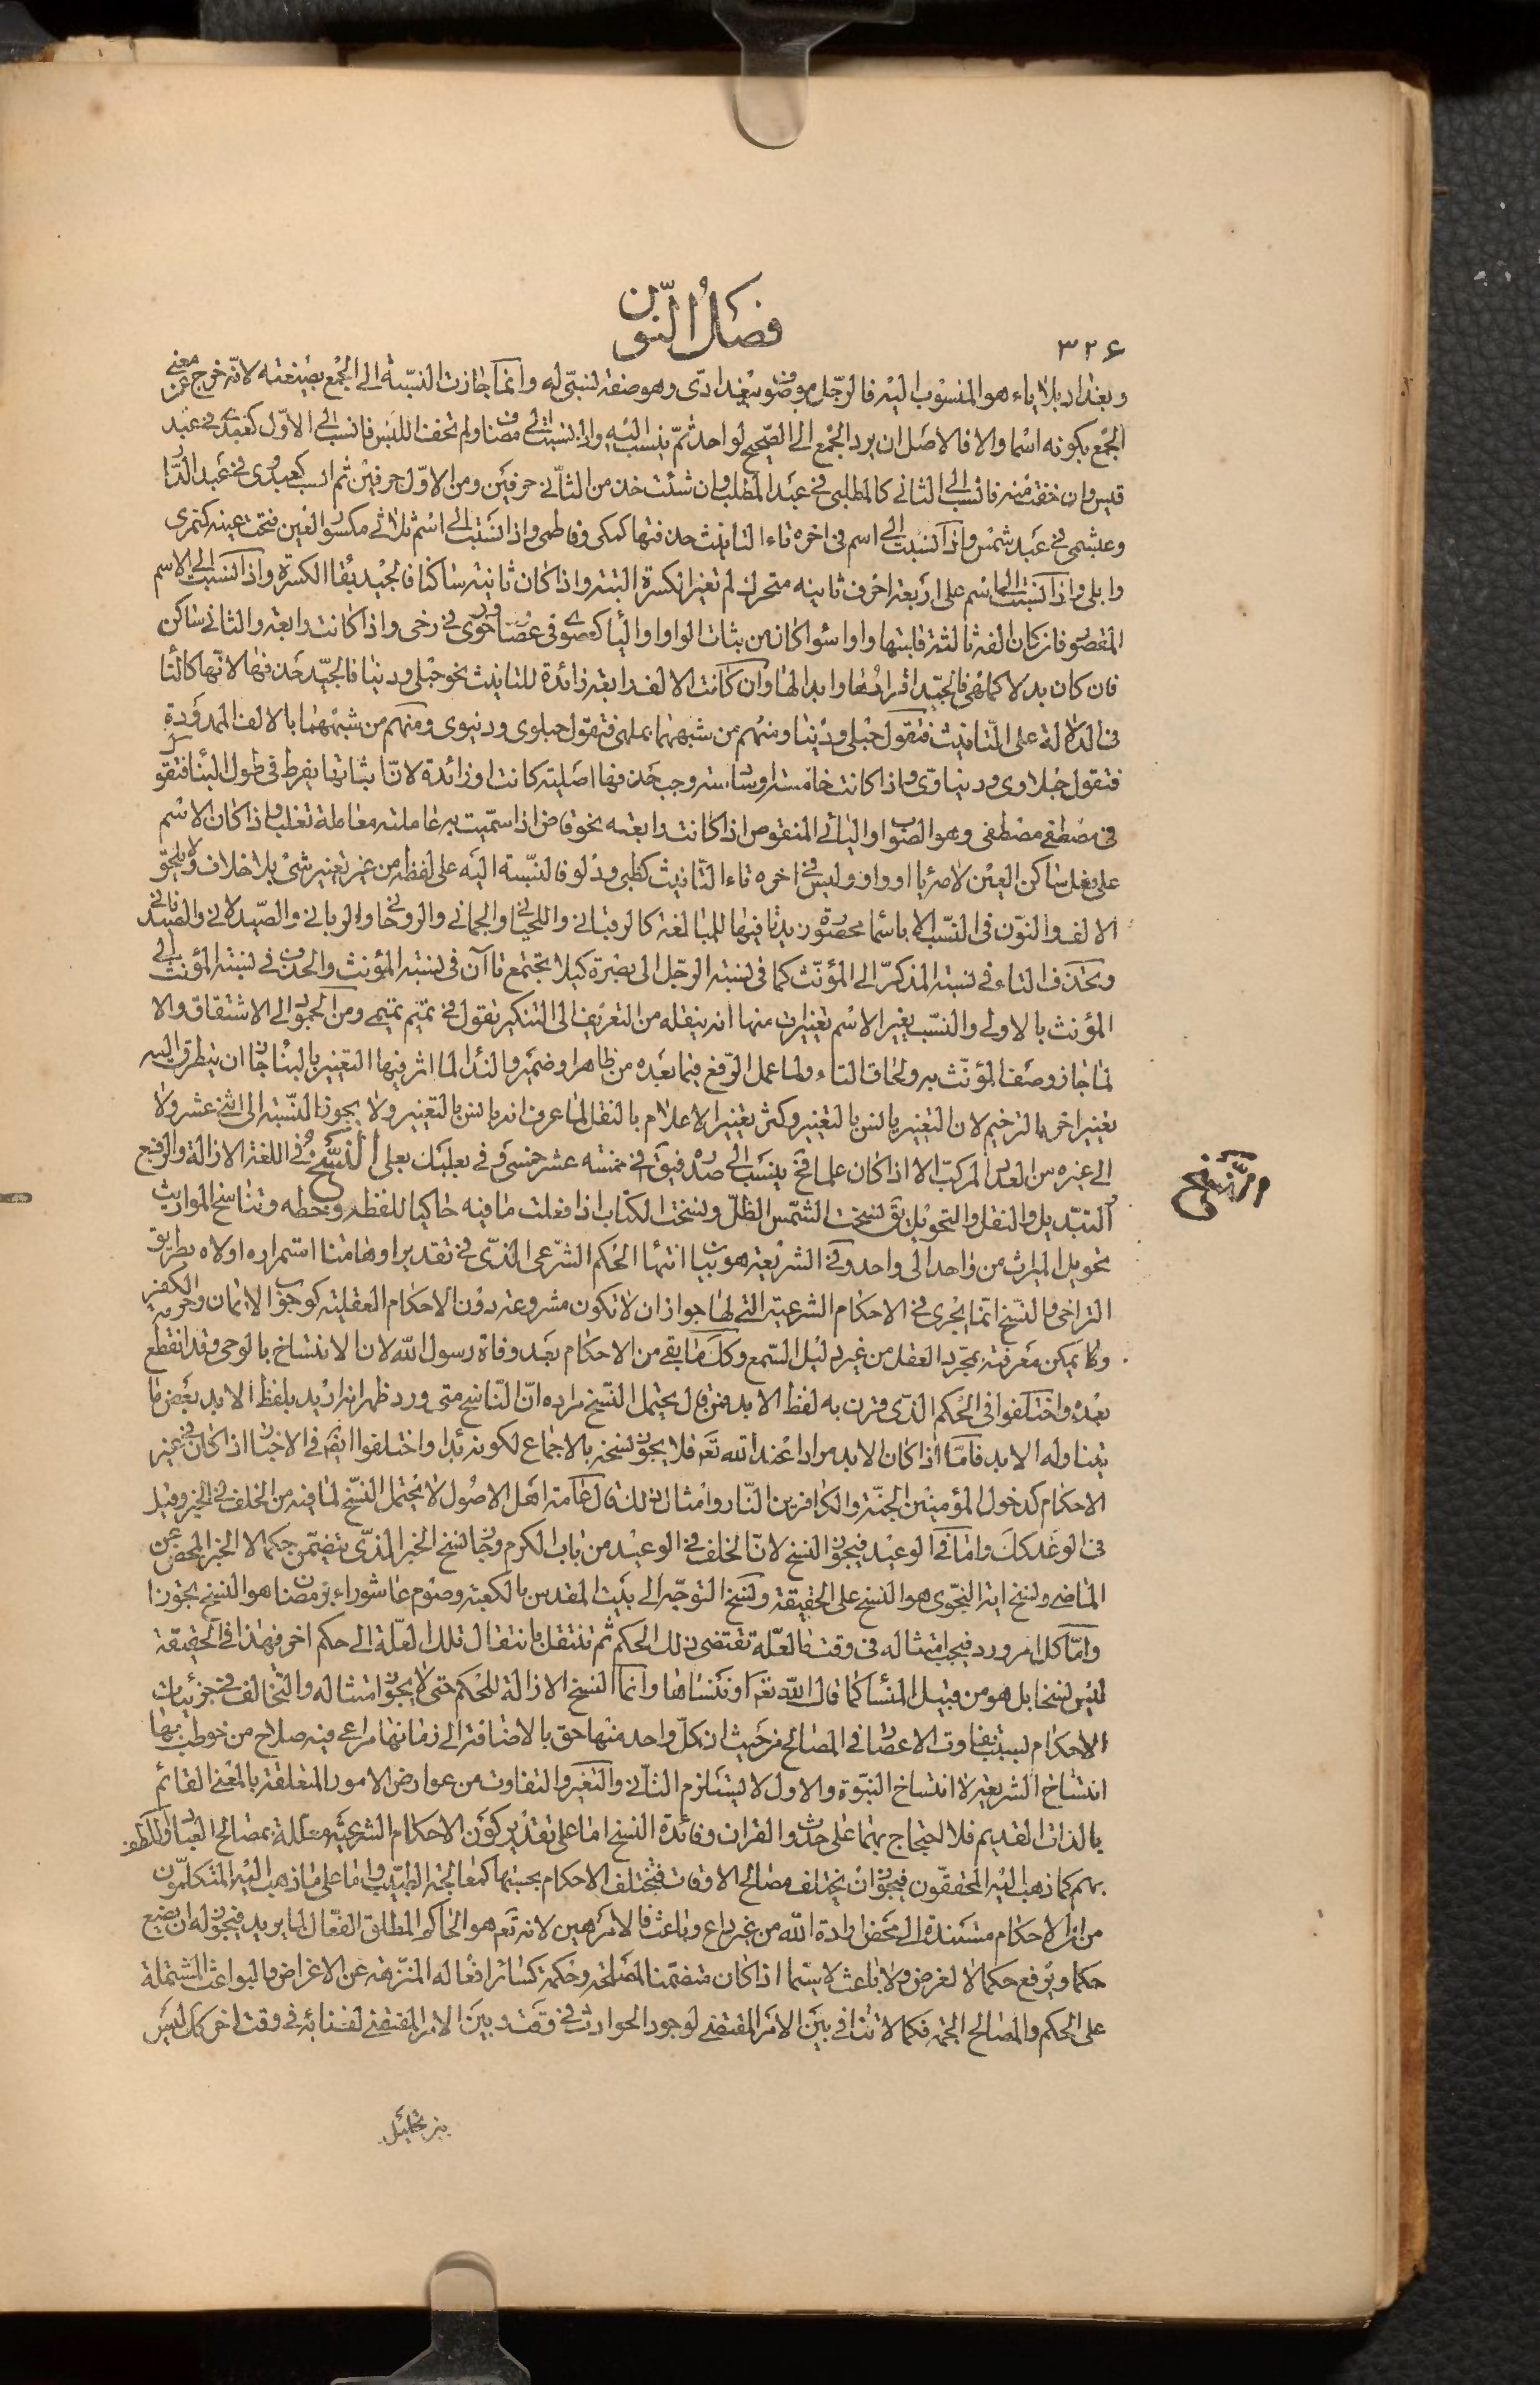 ٣٢٦
فصل النون
وبغداد بلا ياء هو المنسوب اليه فالرجل موصوف ببغدادى وهو صفة لنسبى له وانما جازت النسبة الى الجمع بصيغته لانه خرج عن معنى
الجمع بكونه اسما والا فالاصل ان يرد الجمع الى الصحيح لواحد ثم ينسب اليه واذا نسبت الى مضاف ولم تخف اللبس فانسب الى الاول كعبدى فى عبد
قيس وان خفت منه فانسب الى الثانى كالمطلبى فى عبد المطلب وان شئت خذ من الثانى حرفين ومن الاول حرفين ثم انسب كعبدرى فى عبد الدار
وعبشمى فى عبد شمس واذا نسبت الى اسم فى اخره تاء التانيث حذفتها كمكى وفاطمى واذا نسبت الى اسم ثلاثى مكسور العين فتحت عينه كنمرى
وابلى واذا نسبت الى اسم على اربعة احرف ثانيه متحرك لم تغير الكسرة البتة واذا كان ثانيه ساكنا فالجيد بقاء الكسرة واذا نسبت الى الاسم
المقصور فان كان الفه ثالثة قلبتها واوا سواء كان من بنات الواو او الياء كعصوى فى عصا ورحوى فى رحى واذا كانت رابعة والثانى ساكن
فان كان بدلا كملهى فالجيد اقرارها وابدالها وان كانت الالف رابعة زائدة للتانيث نحو حبلى ودنيا فالجيد حذفها لانها كالتاء
فى الدلالة على التانيث فتقول حبلى ودنيا ومنهم من شبهها بملهى فتقول حبلوى ودنيوى ومنهم من شبهها بالالف الممدودة
فتقول حبلاوى ودنياوى واذا كانت خامسة او سادسة وجب حذفها اصلية كانت او زائدة لان بثباتها يفرط فى طول البناء فتقول
فى مصطفى مصطفى وهو الصواب والياء المنقوص اذا كانت رابعة نحو قاض اذا سميت به عاملته معاملة تغلب واذا كان الاسم
على فعل ساكن العين لامه ياء او واو وليس فى اخره تاء التانيث كظبى ودلو فالنسبة اليه على لفظه من غير تغيير شئ بلا خلاف ولا يلحق
الالف والنون فى النسب الا باسماء محصورة زيدتا فيها للمبالغة كالرقبانى واللحيانى والجمانى والروحانى والربانى والصيدلانى والصيدنانى
ويحذف التاء فى نسبة المذكر الى المؤنث كما فى نسبة الرجل الى بصرة كيلا تجتمع تاآن فى نسبة المؤنث والحذف فى نسبة المؤنث الى
المؤنث بالاولى والنسب يغير الاسم تغييرات منها انه ينقله من التعريف الى التنكير تقول فى تميم تميمى ومن الجمود الى الاشتقاق والا
لما جاز وصف المؤنث به ولحاق التاء ولما عمل الرفع فيما بعده من ظاهر او ضمير والنداء لما اثر فيها التغيير بالبناء جاز ان يتطرق اليه
تغيير اخر بالترخيم لان التغيير يانس بالتغيير وكثر تغيير الاعلام بالنقل لما عرف انه يانس بالتغيير ولا يجوز النسبة الى اثنى عشر ولا
الى غيره من العدد المركب الا اذا كان علما فح ينسب الى صدره فيق فى خمسة عشر خمسى وفى بعلبك بعلى النسخ فى اللغة الازالة والرفع
والنسخ
التبديل والنقل والتحويل يق نسخت الشمس الظل ونسخت الكتاب اذا فعلت ما فيه حاكيا للفظه وخطه وتناسخ المواريث
تحويل الميراث من واحد الى واحد وفى الشريعة هو بيان انتهاء الحكم الشرعى الذى فى تقدير اوهامنا استمراره لولاه بطريق
التراخى والنسخ انما يجرى فى الاحكام الشرعية التى لها جواز ان لا تكون مشروعة دون الاحكام العقلية كوجوب الايمان وحرمة الكفر
وما يمكن معرفته بمجرد العقل من غير دليل السمع وكل ما بقى من الاحكام بعد وفاة رسول الله لان الانتساخ بالوحى وقد انقطع
بعده واختلفوا فى الحكم الذى قرن به لفظ الابد فمن قال يحتمل النسخ مراده ان الناسخ متى ورد ظهر انه اريد بلفظ الابد بعض ما
يتناوله الابد فاما اذا كان الابد مرادا عند الله تعم فلا يجوز نسخه بالاجماع لكونه بداء واختلفوا ايضا فى الاخبار اذا كان فى غير
الاحكام كدخول المؤمنين الجنة والكافرين النار وامثال ذلك قال عامة اهل الاصول لا يحتمل النسخ لما فيه من الخلف فى الخبر وقيل
فى الوعد كك واما فى الوعيد فيجوز النسخ لان الخلف فى الوعيد من باب الكرم وجاز نسخ الخبر الذى يتضمن حكما لا الخبر المحض عن
الماضى ونسخ اية النجوى هو النسخ على الحقيقة ونسخ التوجه الى بيت المقدس بالكعبة وصوم عاشوراء برمضان هو النسخ تجوزا
واما كل امر ورد فيجب امتثاله فى وقت ما لعلة تقتضى ذلك الحكم ثم تنتقل بانتقال تلك العلة الى حكم اخر فهذا فى الحقيقة
ليس نسخا بل هو من قبيل المنسأ كما قال الله تعم او ننساها وانما النسخ الازالة للحكم حتى لا يجوز امتثاله والتخالف فى جزئيات
الاحكام لسبب تفاوت الاعصار فى المصالح من حيث ان كل واحد منها حق بالاضافة الى زمانها مراعى فيه صلاح من خوطب بها
انتساخ الشريعة لا انتساخ النبوة والاول لا يستلزم الثانى والتغير والتفاوت من عوارض الامور المتعلقة بالمعنى القائم
بالذات القديم فلا احتجاج بهما على حدوث القران وفائدة النسخ اما على تقدير كون الاحكام الشرعية معللة بمصالح العباد واللطف
بهم كما ذهب اليه المحققون فيجوز ان يختلف مصالح الاوقات فتختلف الاحكام بحسبها كمعالجة الطبيب واما على ما ذهب اليه المتكلمون
من ان الاحكام مستندة الى محض ارادة الله من غير داع وباعث فالامر هين لانه تعم هو الحاكم المطلق الفعال لما يريد فيجوز له ان يضع
حكما ويرفع حكما لا لغرض ولا باعث لا سيما اذا كان متضمنا لمصلحة وحكمة كسائر افعاله المنزهة عن الاغراض والبواعث المشتملة
على الحكم والمصالح الجمة فكما لا تنافى بين الامر المقتضى لوجود الحوادث فى وقت وبين الامر المقتضى لفنائه فى وقت اخر كك ليس
بين تحليل